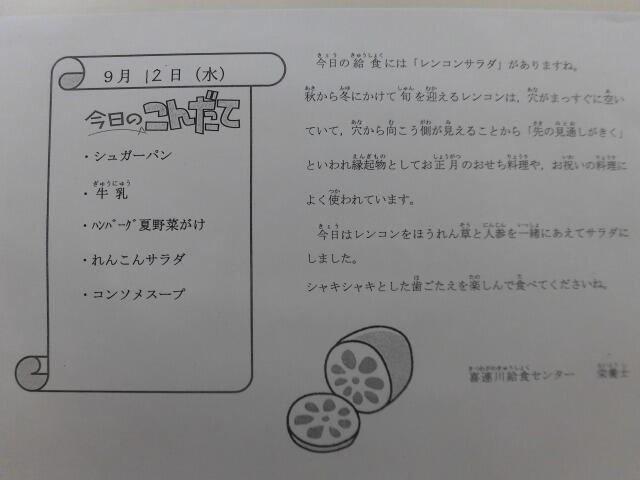 9月12日（水）
今日のこんだて
・シュガーパン
・牛乳
ぎゅうにゅう
・ﾊﾝﾊﾞｰｸﾞ夏野菜がけ
・れんこんサラダ
・コンソメスープ
今日の給食には「レンコンサラダ」がありますね。
秋から冬にかけて旬を迎えるレンコンは，穴がまっすぐに空い
ていて，穴から向こう側が見えることから「先の見通しがきく」
といわれ縁起物としてお正月のおせち料理や，お祝いの料理に
よく使われています。
今日はレンコンをほうれん草と人参を一緒にあえてサラダに
しました。
シャキシャキとした歯ごたえを楽しんで食べてくださいね。
喜連川給食センター　栄養士